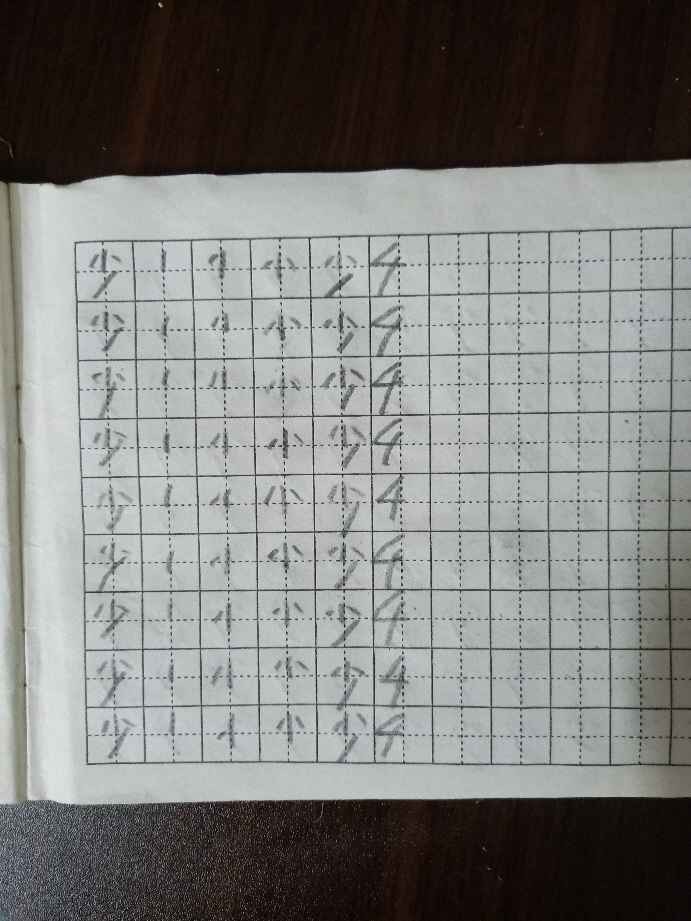 少 亅 小 小 少 4
少 亅 小 小 少 4
少 亅 小 小 少 4
少 亅 小 小 少 4
少 亅 小 小 少 4
少 亅 小 小 少 4
少 亅 小 小 少 4
少 亅 小 小 少 4
少 亅 小 小 少 4